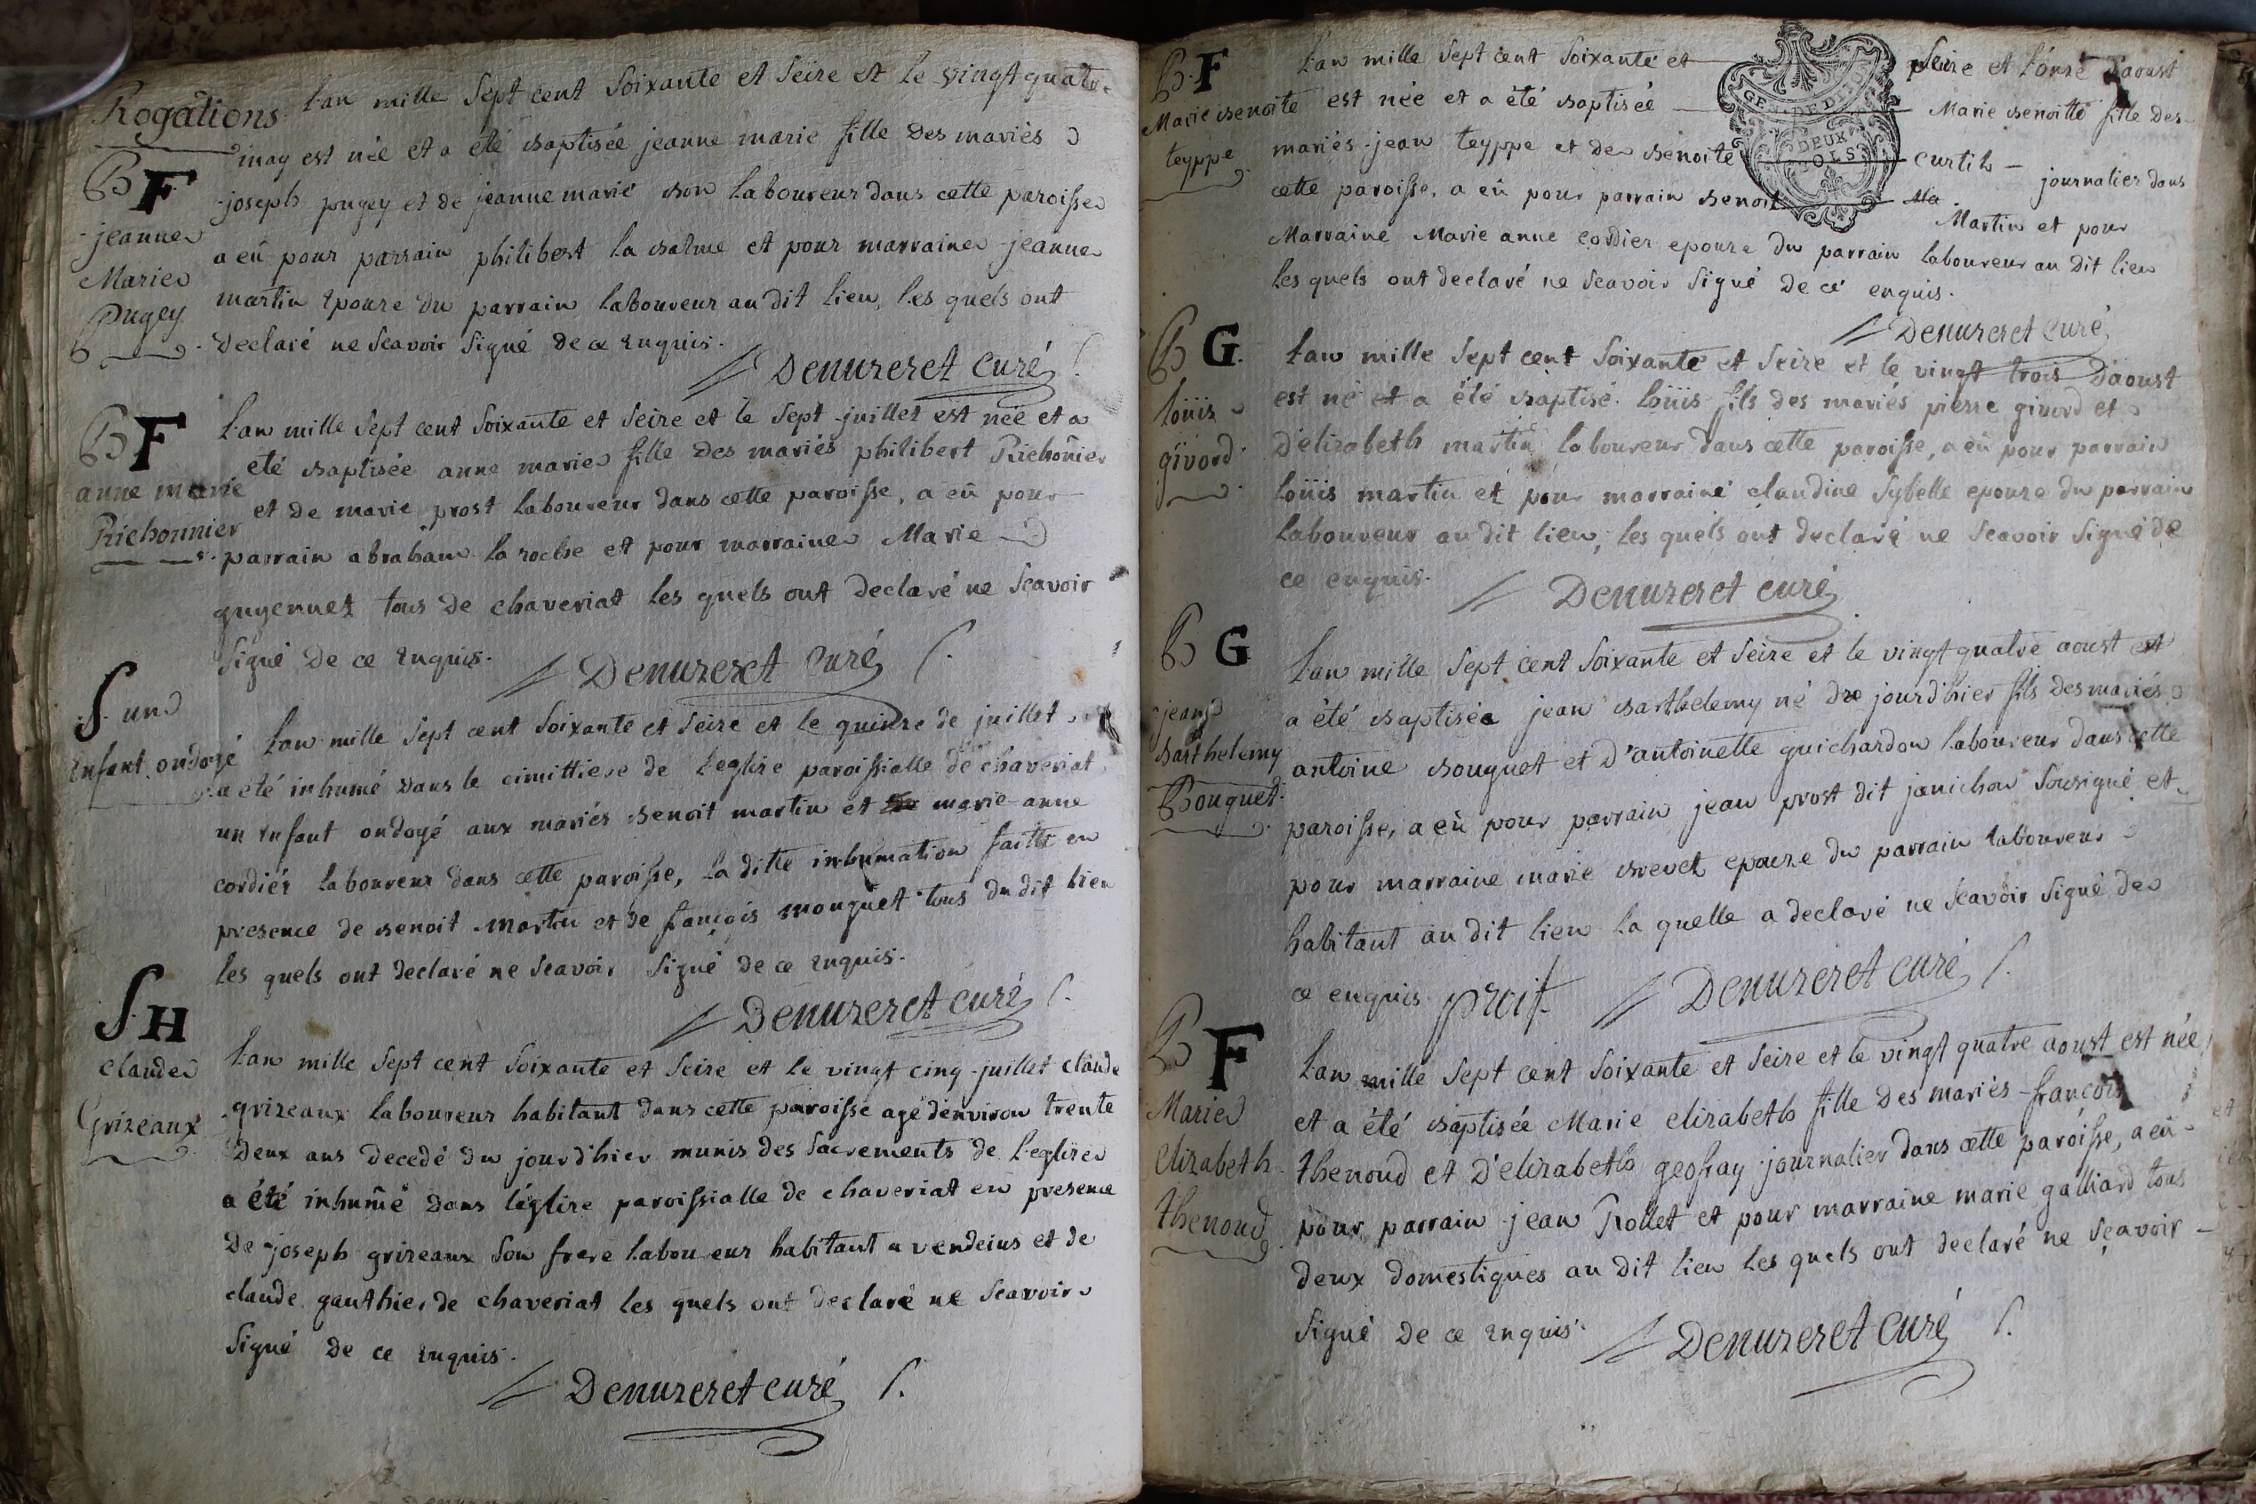 Rogations
L'an mille sept cent soixante et seize et le vingt quatre
may est née et a été baptisée jeanne marie fille des mariés
joseph pugey et de jeanne marie bon laboureur dans cette paroisse
a eû pour parrain philibert la balme et pour marraine jeanne
martin epouze du parrain laboureur au dit lieu, les quels ont
declaré ne scavoir signé de ce enquis.
Denuzeret curé
B F
jeanne
Marie
Pugey
L'an mille sept cent soixante et seize et le sept juillet est née et a
eté baptisée anne marie fille des mariés philibert Richonier
et de marie prost laboureur dans cette paroisse, a eû pour
parrain abraham la roche et pour marraine Marie
guyennet tous de chaveriat les quels ont declaré ne scavoir
signé de ce enquis.
Denuzeret curé
B F
anne marie
Richonnier
L'an mille sept cent soixante et seize et le quinze de juillet
a été inhumé dans le cimittiere de l'eglise paroissialle de chaveriat
un enfant ondoyé aux mariés benoit martin et marie anne
cordier laboureur dans cette paroisse, la ditte inhumation faitte en
presence de benoit martin et de françois mouguet tous du dit lieu
les quels ont declaré ne scavoir signé de ce enquis.
Denuzeret curé
S. un
enfant ondoyé
L'an mille sept cent soixante et seize et le vingt cinq juillet claude
grizeaux laboureur habitant dans cette paroisse agé d'environ trente
deux ans decedé du jourd'hier munis des sacrements de l'eglize
a été inhumé dans l'églize paroissialle de chaveriat en presence
de joseph grizeaux son frere laboureur habitant a vendeius et de
claude gauthier de chaveriat les quels ont declaré ne scavoir
signé de ce enquis.
Denuzeret curé
S. H
claude
Grizeaux
L'an mille sept cent soixante et seize et l'onze d'aoust
est née et a été baptisée Marie benoitte fille des
mariés jean teyppe et de benoite curtil journalier dans
cette paroisse, a eû pour parrain benoit Ma Martin et pour
Marraine Marie anne cordier epouze du parrain laboureur au dit lieu
les quels ont declaré ne scavoir signé de ce enquis.
Denuzeret curé
GEN. DE DIJON
DEUX SOLS
B F
Marie benoite
teyppe
L'an mille sept cent soixante et seize et le vingt trois d'aoust
est né et a été baptisé loüis fils des mariés pierre givord et
d'elizabeth martin laboureur dans cette paroisse, a eû pour parrain
loüis martin et pour marraine claudine sybelle epouze du parrain
laboureur au dit lieu, les quels ont declaré ne scavoir signé de
ce enquis.
Denuzeret curé
B G.
loüis
givord
L'an mille sept cent soixante et seize et le vingt quatre aoust est
a été baptisée jean barthelemy né du jourd'hier fils des mariés
antoine bouguet et d'antoinette guichardon laboureur dans cette
paroisse, a eû pour parrain jean prost dit janichon sousigné et
pour marraine marie brevet epouze du parrain laboureur
habitant au dit lieu la quelle a declaré ne scavoir signé de
ce enquis. prost Denuzeret curé
B G
jean
barthelemy
Bouguet
L'an mille sept cent soixante et seize et le vingt quatre aoust est née
et a été baptisée Marie elizabeth fille des mariés françois
thenoud et d'elizabeth geofray journalier dans cette paroisse, a eû
pour parrain jean Rollet et pour marraine marie galliard tous
deux domestiques au dit lieu les quels ont declaré ne sçavoir
signé de ce enquis.
Denuzeret curé
B F
Marie
elizabeth
thenoud